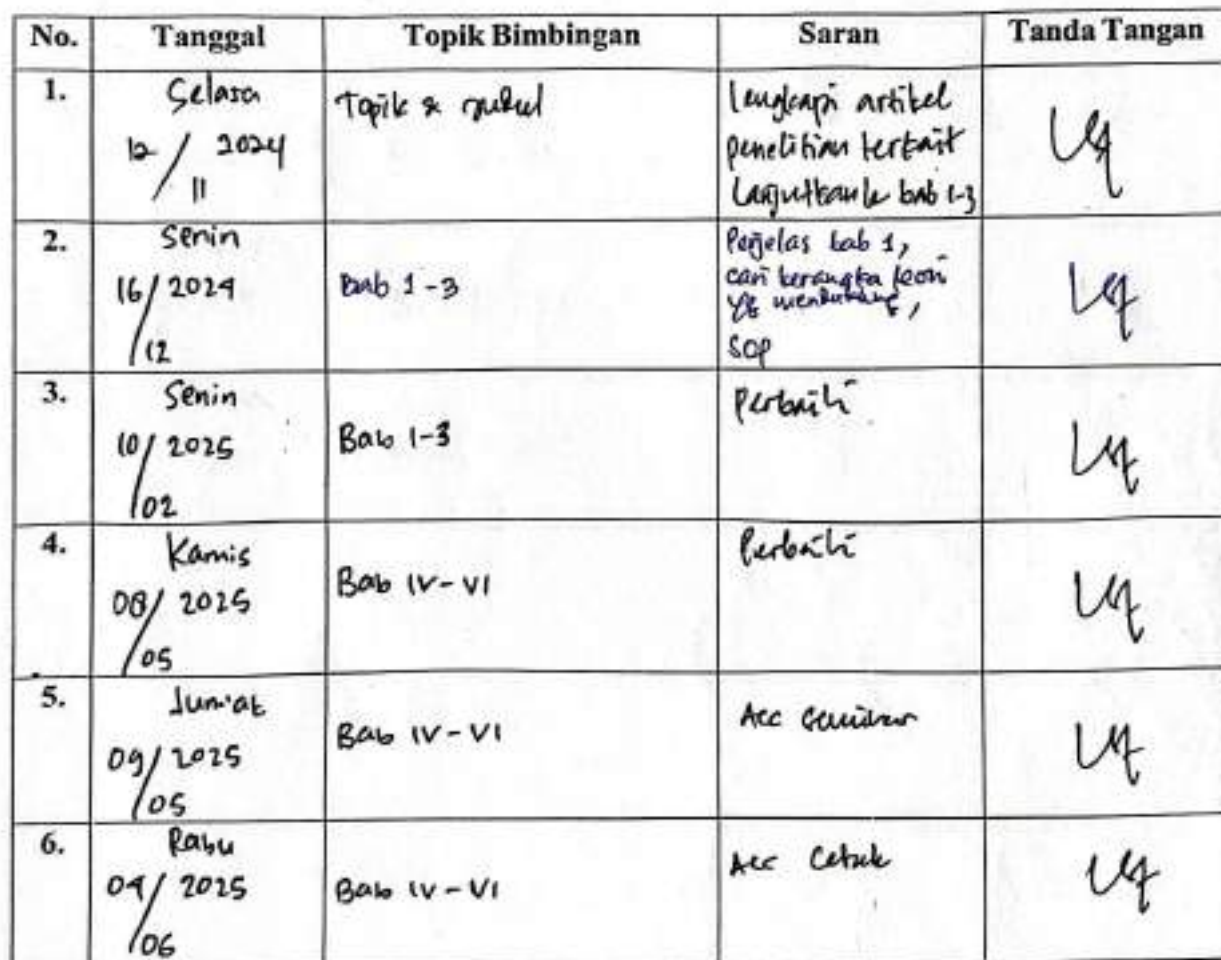 No. Tanggal Topik Bimbingan Saran Tanda Tangan
1. Selasa
12/11 2024
Topik & judul
lengkapi artikel
penelitian terkait
lanjutkan ke bab 1-3
2. Senin
16/12 2024
Bab 1-3
Perjelas bab 1,
cari kerangka teori
yg mendukung,
SOP
3. Senin
10/02 2025
Bab 1-3
Perbaiki
4. Kamis
08/05 2025
Bab IV-VI
Perbaiki
5. Jum'at
09/05 2025
Bab IV-VI
Acc Seminar
6. Rabu
04/06 2025
Bab IV-VI
Acc Cetak